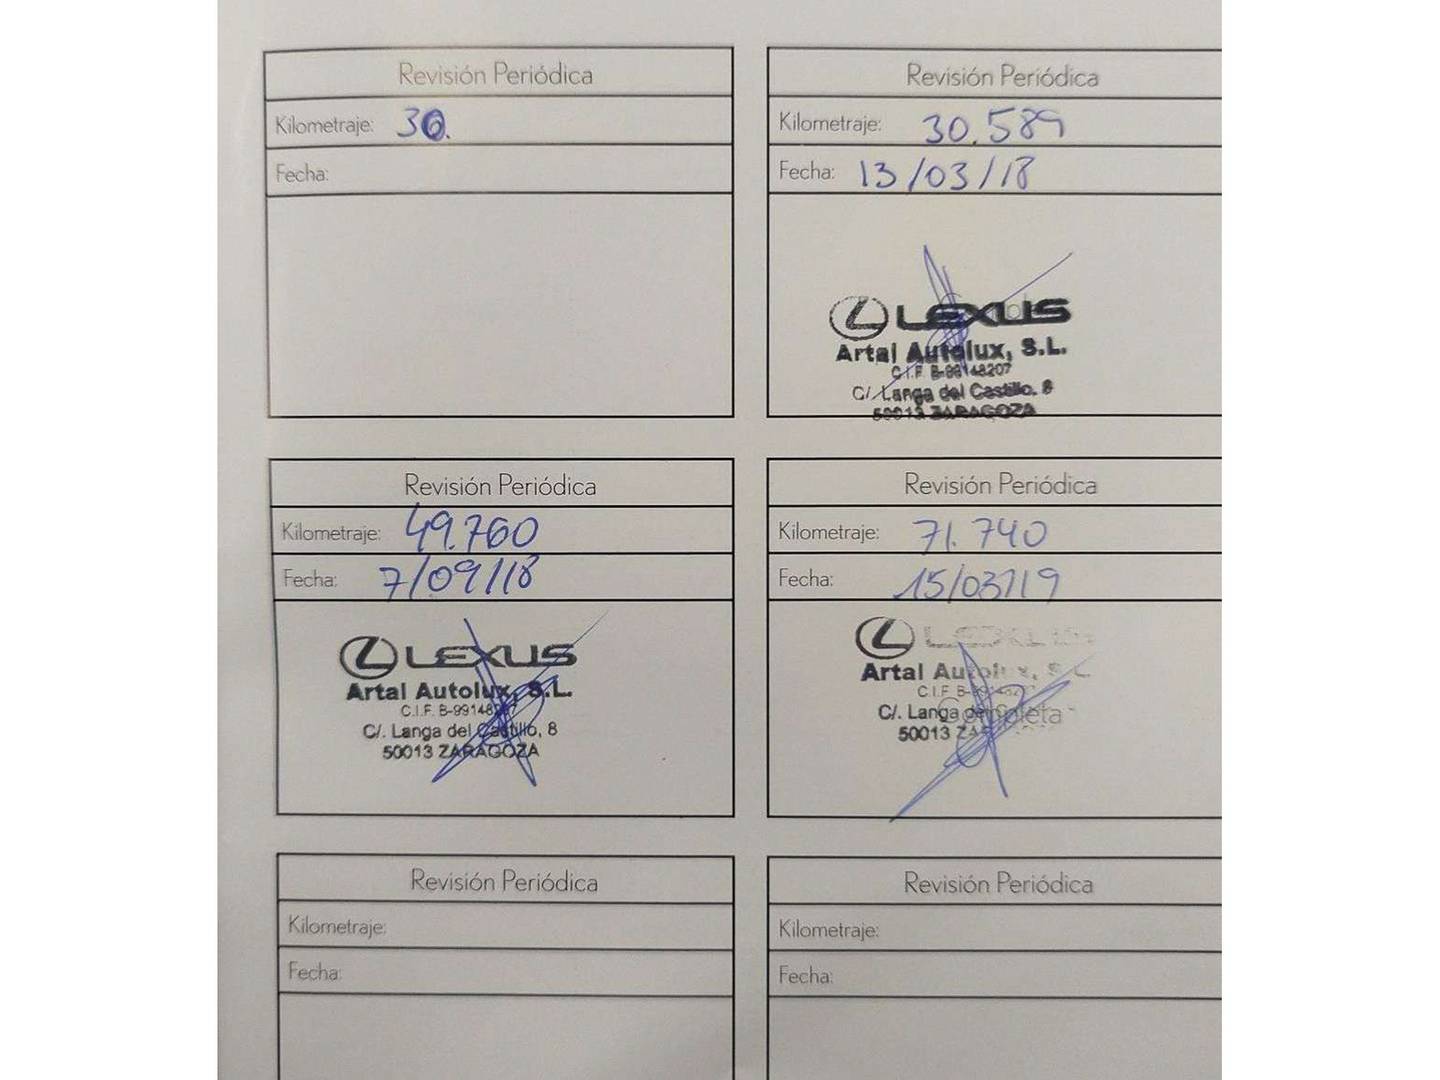 Revisión Periódica
Kilometraje: 30.
Fecha:
Revisión Periódica
Kilometraje: 30.589
Fecha: 13/03/18
LEXUS
Artal Autolux, S.L.
C.I.F. B-99148207
C/. Langa del Castillo, 8
50013 ZARAGOZA
Revisión Periódica
Kilometraje: 49.760
Fecha: 7/09/18
LEXUS
Artal Autolux, S.L.
C.I.F. B-99148207
C/. Langa del Castillo, 8
50013 ZARAGOZA
Revisión Periódica
Kilometraje: 71.740
Fecha: 15/03/19
LEXUS
Artal Autolux, S.L.
C.I.F. B-
C/. Langa del
Completa
50013
Revisión Periódica
Kilometraje:
Fecha:
Revisión Periódica
Kilometraje:
Fecha: